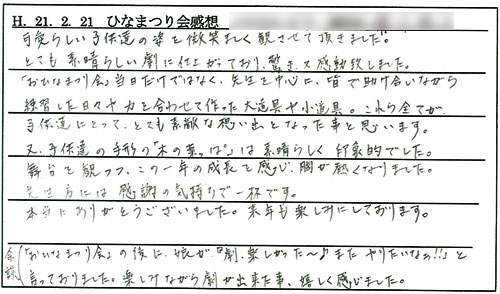 H. 21. 2. 21 ひなまつり会感想
可愛らしい子供達の姿を微笑ましく観させて頂きました。
とても素晴らしい劇に仕上がっており、驚き、又感動致しました。
「おひなまつり会」当日だけではなく、先生を中心に、皆で助け合いながら
練習した日々や力を合わせて作った大道具や小道具。これら全てが、
子供達にとって、とても素敵な想い出となった事と思います。
又、子供達の手形の「木の葉っぱ」は素晴らしく印象的でした。
舞台を観つつ、この一年の成長を感じ、胸が熱くなりました。
先生方には感謝の気持ちで一杯です。
本当にありがとうございました。来年も楽しみにしております。
余談
「おひなまつり会」の後に、娘が、『劇、楽しかった〜♪またやりたいなぁ!!』と
言っておりました。楽しみながら劇が出来た事、嬉しく感じました。